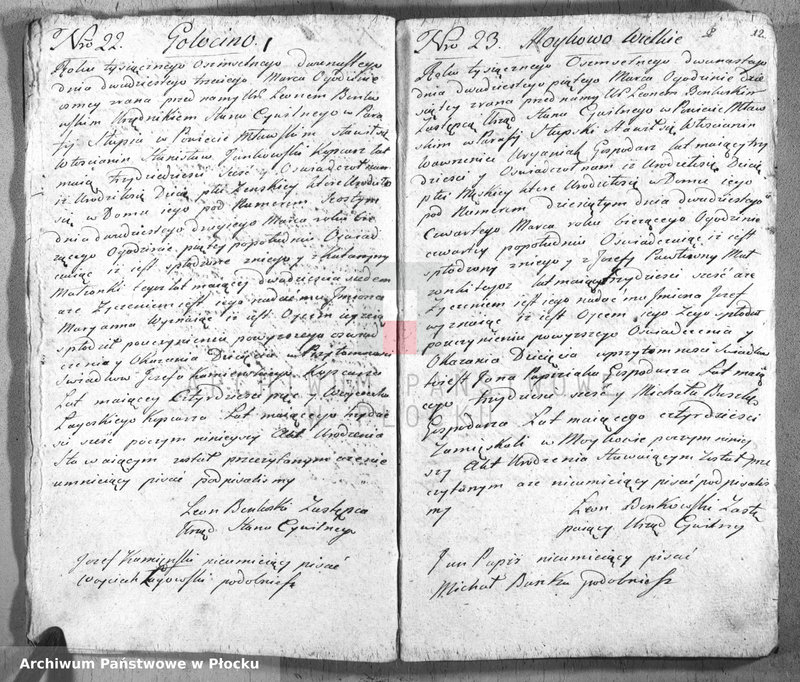 Nro 22. Gołocino.
Roku tysiącznego Osmsetnego dwunastego
dnia dwudziestego trzeciego Marca Ogodzinie
osmey zrana przed namy Leonem Benkow
wskim Urzędnikiem Stanu Cywilnego w Para
fy Słupia w Powiecie Mławskim stawił się
Włościanin Stanisław Jankowski Kopcarz lat
maiący trzydziesci szesc y Oswiadczał nam
iż Urodziło się Dziecię płci Zenskiey ktore Urodziło
się w Domu iego pod Numerem Szostym
dnia dwudziestego drugiego Marca roku bie
zącego Ogodzinie piątey popołudniu Oswiad
czaiąc iż iest spłodzone z niego y z Katarzyny
Małżonki iego lat maiący dwadziescia siedem
arz Zyczeniem iest iego nadac mu Imiona
Maryanna Wyznaiąc iż iest Oycem
spłodził poczynieniu powyzszego oswiad
czenia y Okazania Dziecięcia w Przytomnosci
Swiadkow Jozefa Kamienskiego Kopcarza
Lat maiący Cztyrdziesci pięc y Woyciecha
Łagoskiego Kopcarza Lat maiącego trzydzie
sci szesc poczym ninieyszy Akt Urodzenia
Stawaiącym został przeczytanym arz nie
umieiący pisac podpisalismy
Leon Benkoski Zastępca
Urzęd Stanu Cywilnego
Jozef Kamienski nieumieiący pisać
Woyciech Łagowski podobniesz
Nro 23. Moykowo Wielkie
12.
Roku tysiącznego Osmsetnego dwunastego
dnia dwudziestego piątego Marca Ogodzinie dzie
siątey zrana przed namy Leonem Benkoskim
Zastępcą Urzęd Stanu Cywilnego w Powiecie Mław
skim w Parafy Słupski Stawił się Włoscianin
Wawrzeniec Uryaniak Gospodarz Lat maiący trzy
dziesci y Oswiadczał nam iż Urodziło się Dziecię
płci Męskiey ktore Urodziło się w Domu iego
pod Numerem dziesiątym dnia dwudziestego
Czwartego Marca roku biezącego Ogodzinie
czwartey popołudniu Oswiadczaiąc iż iest
spłodzony z niego y z Jozefy Mał
zonki iego lat maiący trzydziesci szesc arz
Zyczeniem iest iego nadać mu Imiona Jozef
wyznaiąc iż iest Oycem iego Zego spłodził
poczynieniu powyzszego Oswiadczenia y
Okazania Dziecięcia wprzytomnosci Swiadkow
Jana Gospodarza Lat maią
cego trzydziesci szesc y Michała
Gospodarza Lat maiącego cztyrdziesci
w Moykowie poczym niniey
szy Akt Urodzenia Stawaiącym Został prze
czytanym arz nieumieiący pisac podpisalis
my
Leon Benkowski Zastę
puiący Urząd Cywilny
Jan Papiż nieumieiący pisać
Michał Banka podobniesz
ARCHIWUM PAŃSTWOWE
W PŁOCKU
Archiwum Państwowe w Płocku